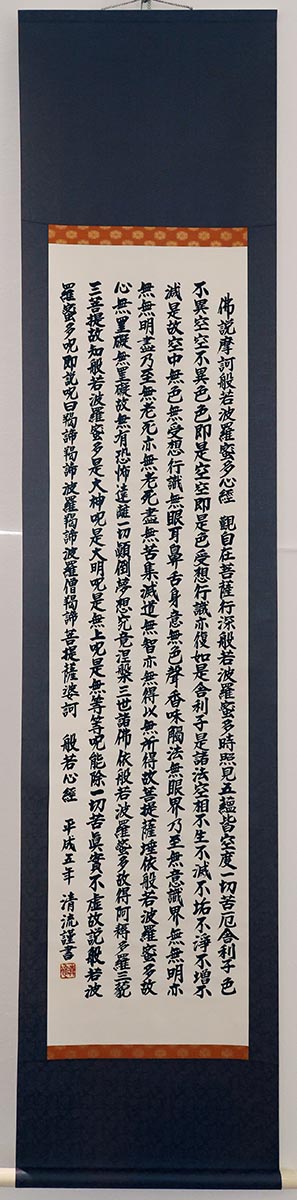 佛説摩訶般若波羅蜜多心經　觀自在菩薩行深般若波羅蜜多時照見五蘊皆空度一切苦厄舎利子色
不異空空不異色色即是空空即是色受想行識亦復如是舎利子是諸法空相不生不滅不垢不淨不增不
滅是故空中無色無受想行識無眼耳鼻舌身意無色聲香味觸法無眼界乃至無意識界無無明亦
無無明盡乃至無老死亦無老死盡無苦集滅道無智亦無得以無所得故菩提薩埵依般若波羅蜜多故
心無罣礙無罣礙故無有恐怖遠離一切顛倒夢想究竟涅槃三世諸佛依般若波羅蜜多故得阿耨多羅三藐
三菩提故知般若波羅蜜多是大神呪是大明呪是無上呪是無等等呪能除一切苦眞實不虚故説般若波
羅蜜多呪即説呪曰羯諦羯諦波羅羯諦波羅僧羯諦菩提薩婆訶　般若心經　平成五年　清流謹書